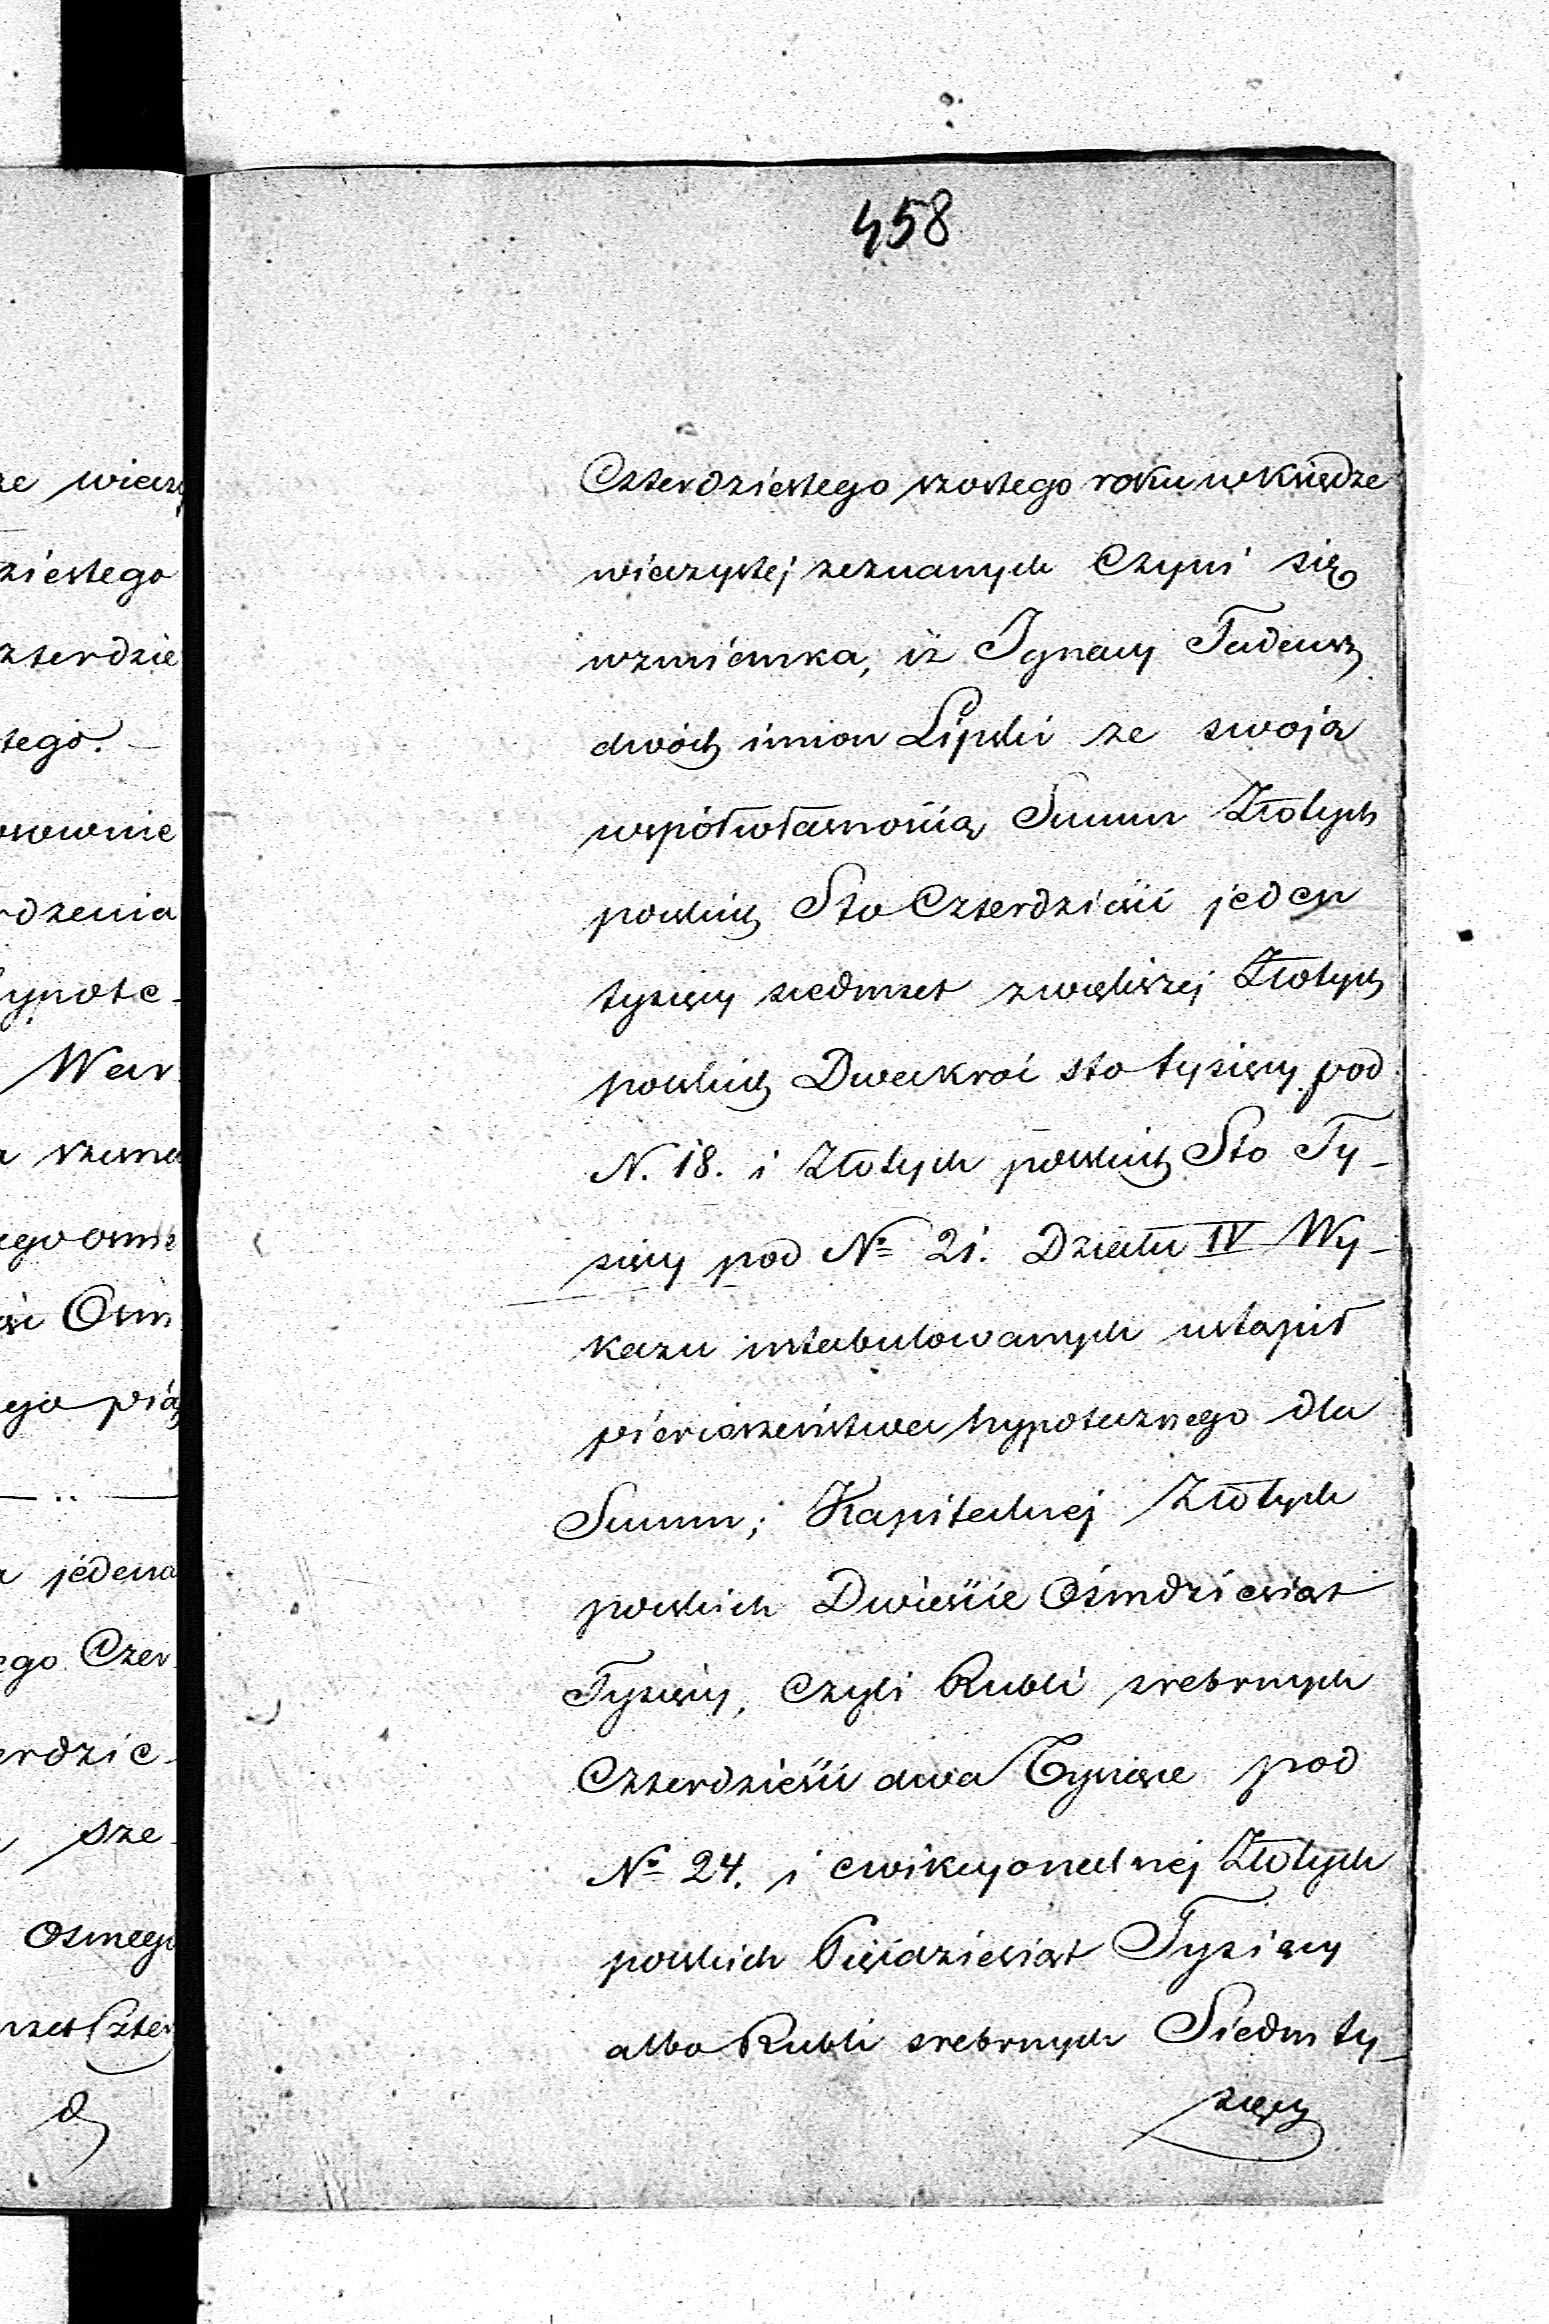 458
Czterdziestego szostego roku w Księdze
wieczystej zeznanych Czyni się
wzmianka, iż Ignacy Tadeusz
dwóch imion Lipski ze swoją
współwłasnością Summ Złotych
polskich Sto Czterdzieści jeden
tysięcy siedmset zwiększej Złotych
polskich Dwakroć sto tysięcy pod
N. 18. i Złotych polskich Sto Ty-
sięcy pod No 21. Działu IV Wy-
kazu intabulowanych ustąpił
pierwszeństwa hypotecznego dla
Summ; Kapitalnej Złotych
polskich Dwieście Ośmdziesiąt
Tysięcy, Czyli Rubli srebrnych
Czterdzieści dwa Tysiące pod
No 24. i ewikcyonalnej Złotych
polskich Pięćdziesiąt Tysięcy
albo Rubli srebrnych Siedm ty-
sięcy
ze wieczy
ziestego
zterdzie
tego.
osownie
dzenia
ypote-
War
szesna
ego osm
Osm
ego pią
jedena
ego Czer
erdzie-
sze-
Osmego
Czter